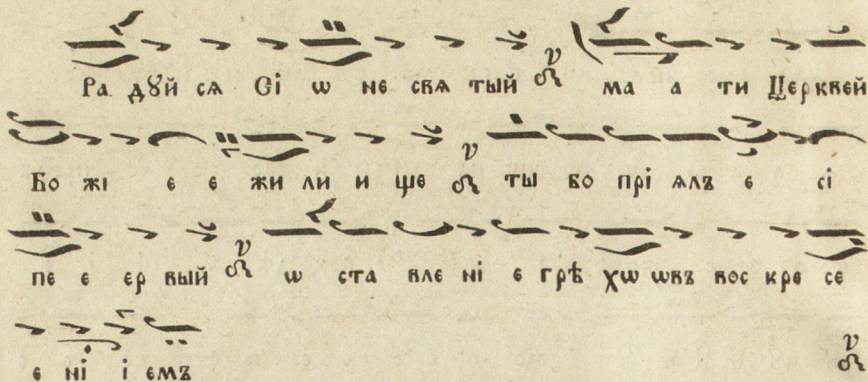 Ра дꙋй сѧ Сі ѡ не свѧ тый ма а ти Церквей
Бо жі е е жи ли и ще ты во прі ѧлъ є сі
пе е ер вый ѡ ста вле ні е грѣ хѡ ѡвъ вос кре се
е ні і емъ